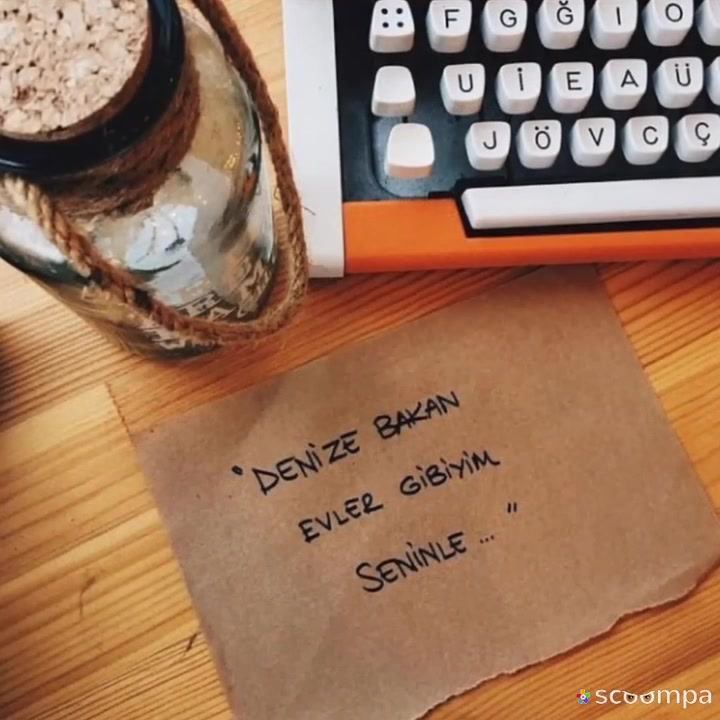 F G Ğ I O
U İ E A Ü
J Ö V C Ç
"DENİZE BAKAN
EVLER GİBİYİM
SENİNLE ... "
scoompa